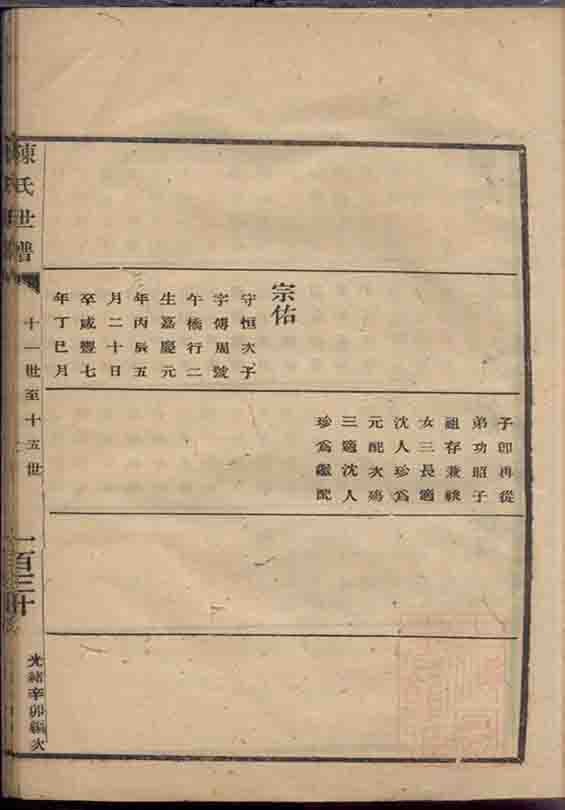 子卽再從
弟功昭子
祖存兼祧
女三長適
沈人珍爲
元配次殤
三適沈人
珍爲繼配
宗佑
守恒次子
字傅周號
午橋行二
生嘉慶元
年丙辰五
月二十日
卒咸豐七
年丁巳月
陳氏世譜
十一世至十五世
一百三十
光緒辛卯編次